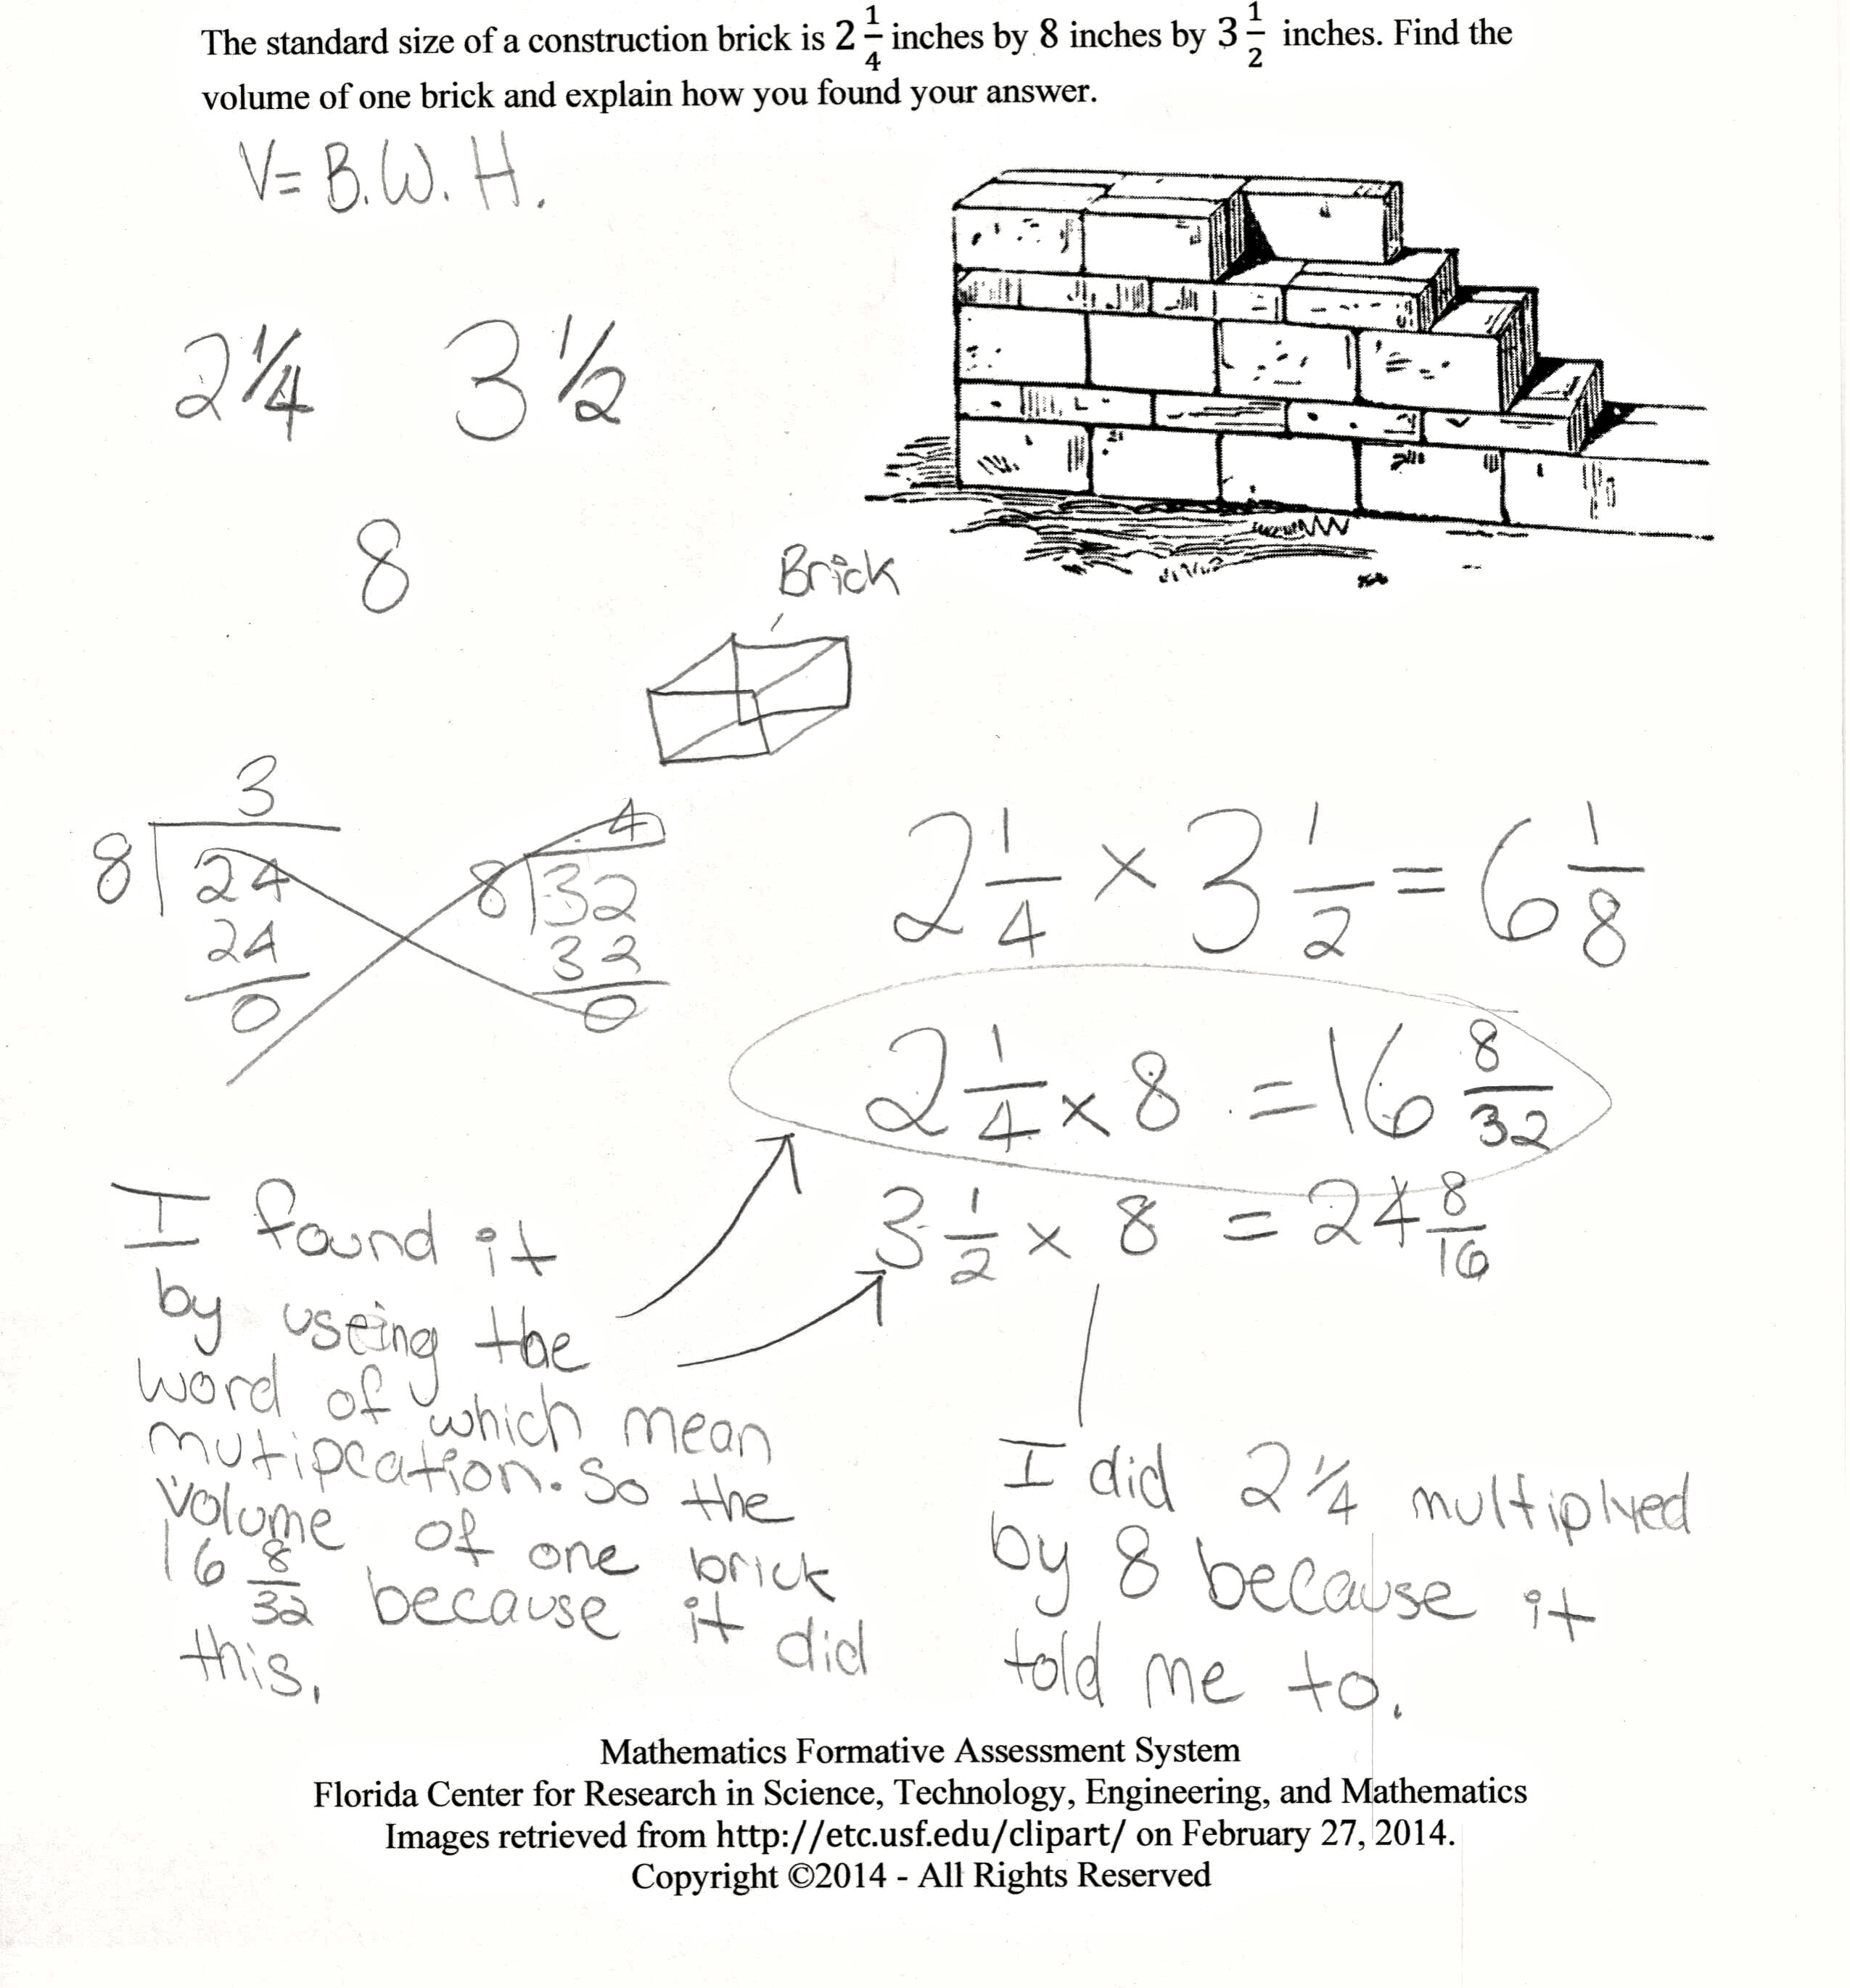 The standard size of a construction brick is 2 1/4 inches by 8 inches by 3 1/2 inches. Find the
volume of one brick and explain how you found your answer.
V= B.W.H.
2 1/4 3 1/2
8
Brick
3
8 24
24
0
4
8 32
32
0
2 1/4 × 3 1/2 = 6 1/8
2 1/4 × 8 = 16 8/32
3 1/2 × 8 = 24 8/16
I found it
by useing the
word of which mean
mutipcation. So the
volume of one brick
16 8/32 because it did
this.
I did 2 1/4 multiplyed
by 8 because it
told me to.
Mathematics Formative Assessment System
Florida Center for Research in Science, Technology, Engineering, and Mathematics
Images retrieved from http://etc.usf.edu/clipart/ on February 27, 2014.
Copyright ©2014 - All Rights Reserved